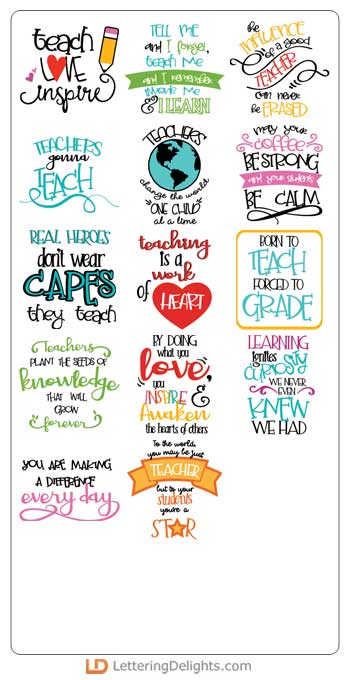 teach
LOVE
inspire
TELL ME
and I forget,
teach me
and I remember
involve me
& I LEARN
the
INFLUENCE
of a good
TEACHER
can never
be ERASED
TEACHERS
gonna
TEACH
TEACHERS
change the world
ONE CHILD
at a time
may your
COFFEE
BE STRONG
and your students
BE CALM
REAL HEROES
don't wear
CAPES
they teach
teaching
IS a
work
of HEART
BORN TO
TEACH
FORCED TO
GRADE
Teachers
PLANT THE SEEDS OF
knowledge
THAT WILL
GROW
forever
BY DOING
what you
love,
you
INSPIRE &
Awaken
the hearts of others
LEARNING
Ignites
CURIOSITY
WE NEVER
EVEN
KNEW
WE HAD
YOU ARE MAKING
A DIFFERENCE
every day
To the world
you may be just
A
TEACHER
but to your
students
you're a
STAR
LD LetteringDelights.com